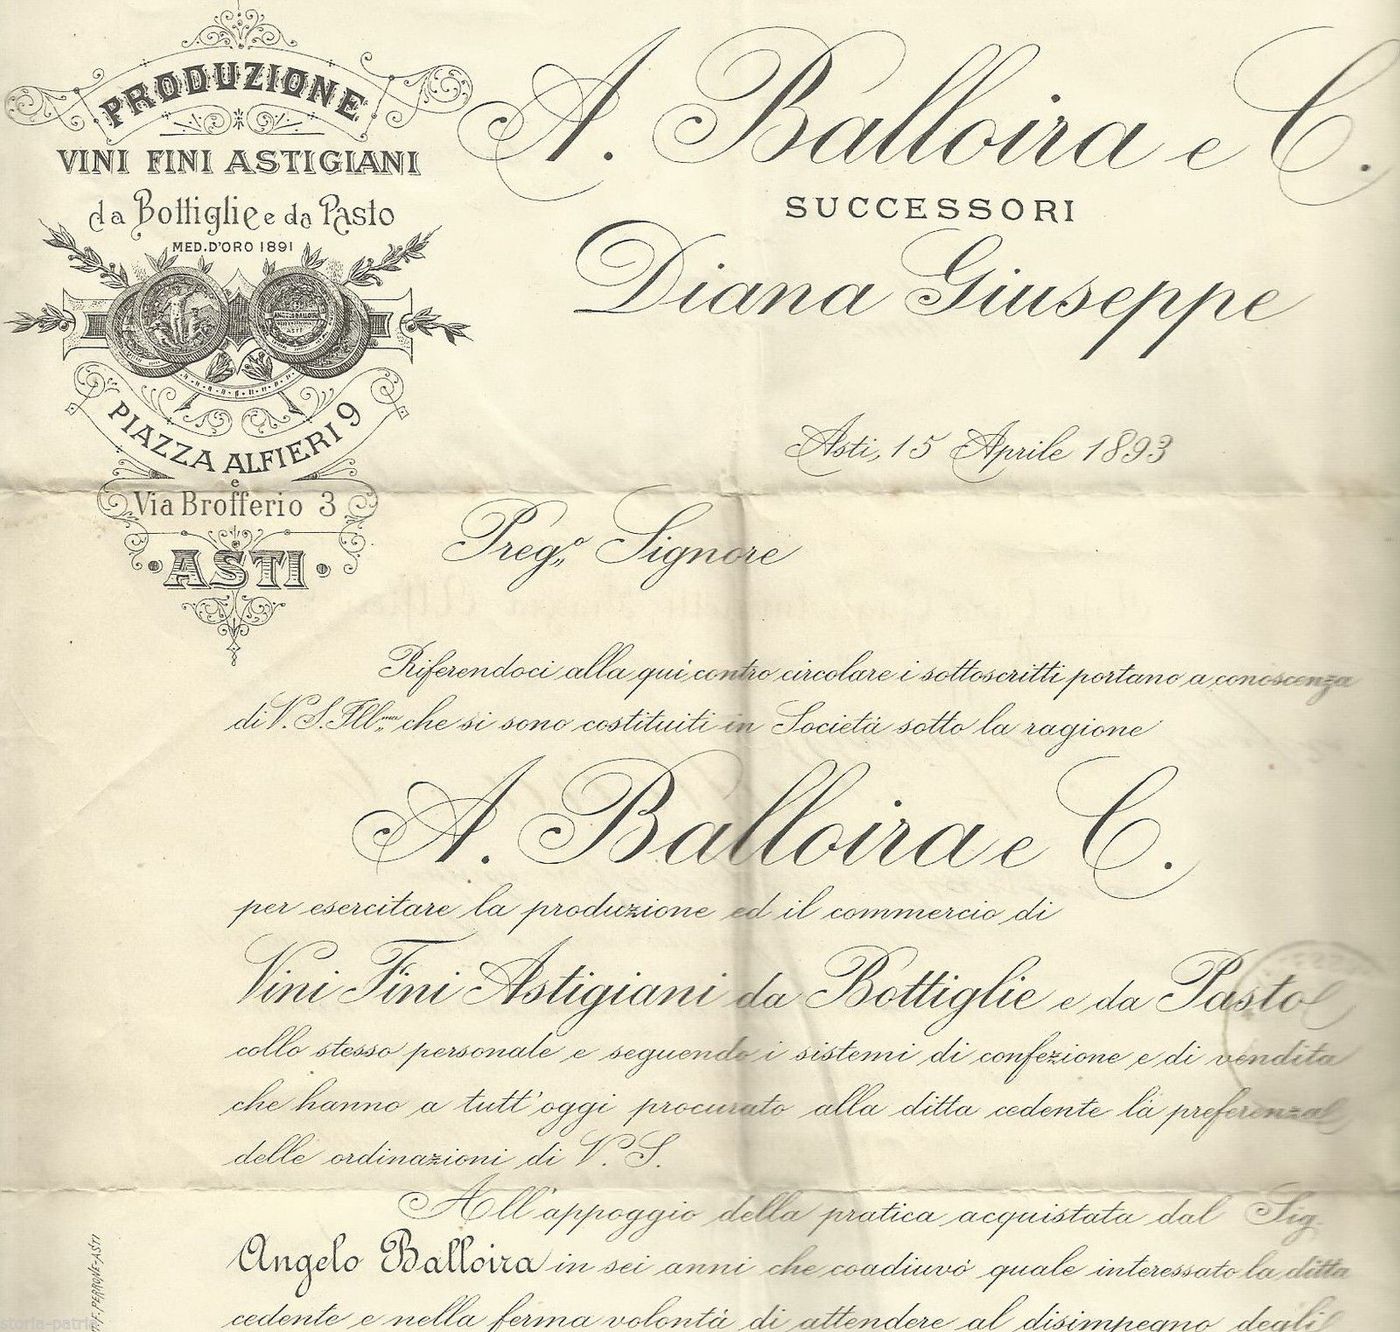 PRODUZIONE
VINI FINI ASTIGIANI
da Bottiglie e da Pasto
MED. D'ORO 1891
PIAZZA ALFIERI 9
e
Via Brofferio 3
ASTI
A. Balloira e C.
SUCCESSORI
Diana Giuseppe
Asti, 15 Aprile 1893
Preg.º Signore
Riferendoci alla qui contro circolare i sottoscritti portano a conoscenza
di V. S. Ill.ma che si sono costituiti in Società sotto la ragione
A. Balloira e C.
per esercitare la produzione ed il commercio di
Vini Fini Astigiani da Bottiglie e da Pasto
collo stesso personale e seguendo i sistemi di confezione e di vendita
che hanno a tutt'oggi procurato alla ditta cedente la preferenza
delle ordinazioni di V. S.
All'appoggio della pratica acquistata dal Sig.
Angelo Balloira in sei anni che coadiuvò quale interessato la ditta
cedente e nella ferma volontà di attendere al disimpegno degli
PERRONE-ASTI
storia-patria